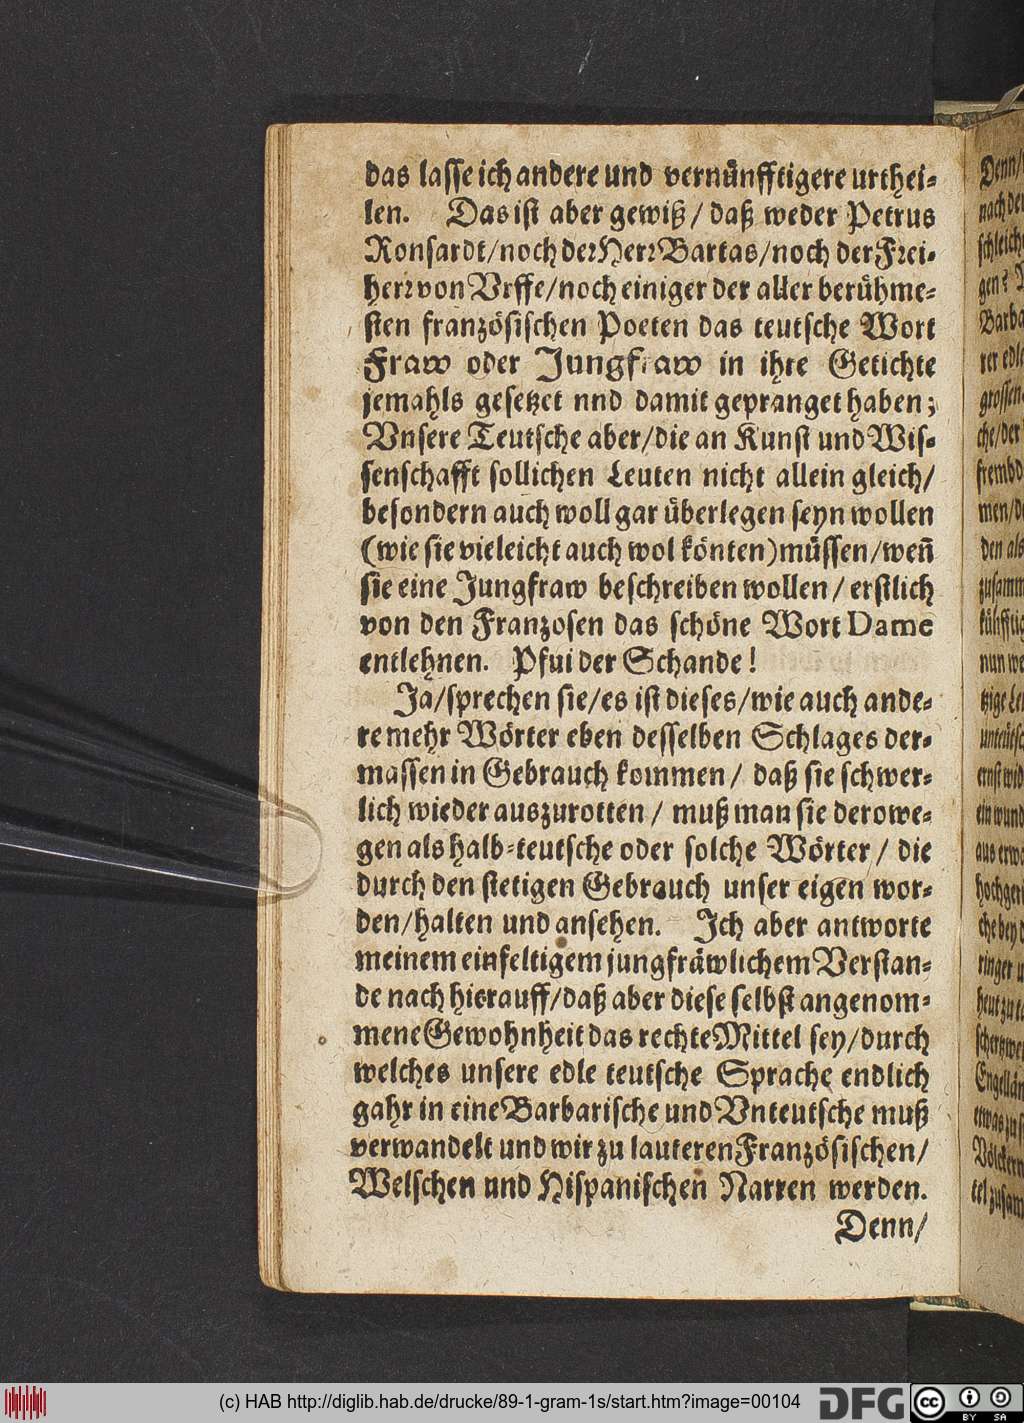 das lasse ich andere und vernünfftigere urthei-
len. Das ist aber gewiß / daß weder Petrus
Ronsardt/noch der Herr Bartas/noch der Frei-
herr von Vrffe/noch einiger der aller berühme-
sten französischen Poeten das teutsche Wort
Fraw oder Jungfraw in ihre Getichte
jemahls gesetzet nnd damit gepranget haben;
Vnsere Teutsche aber/die an Kunst und Wis-
senschafft sollichen Leuten nicht allein gleich/
besondern auch woll gar überlegen seyn wollen
(wie sie vieleicht auch wol könten)müssen/weñ
sie eine Jungfraw beschreiben wollen / erstlich
von den Franzosen das schöne Wort Dame
entlehnen. Pfui der Schande!
Ja/sprechen sie/es ist dieses/wie auch ande-
re mehr Wörter eben desselben Schlages der-
massen in Gebrauch kommen / daß sie schwer-
lich wieder auszurotten / muß man sie derowe-
gen als halb-teutsche oder solche Wörter / die
durch den stetigen Gebrauch unser eigen wor-
den/halten und ansehen. Ich aber antworte
meinem einfeltigem jungfräwlichem Verstan-
de nach hierauff/daß aber diese selbst angenom-
mene Gewohnheit das rechte Mittel sey/durch
welches unsere edle teutsche Sprache endlich
gahr in eine Barbarische und Vnteutsche muß
verwandelt und wir zu lauteren Französischen/
Welschen und Hispanischen Narren werden.
Denn/
Denn/
nach de
schleich
gen?
Barba
rer edle
grossen
che/der
frembd
men/d
den als
zusamm
künfftig
nun we
tzige Le
unteutsc
ernst wid
ein wund
aus erwe
hochgeri
che bey d
ringer u
heut zu ta
schertzwe
Engellän
etwas zu s
Völckern
tel zusam
(c) HAB http://diglib.hab.de/drucke/89-1-gram-1s/start.htm?image=00104
DFG
cc
BY SA